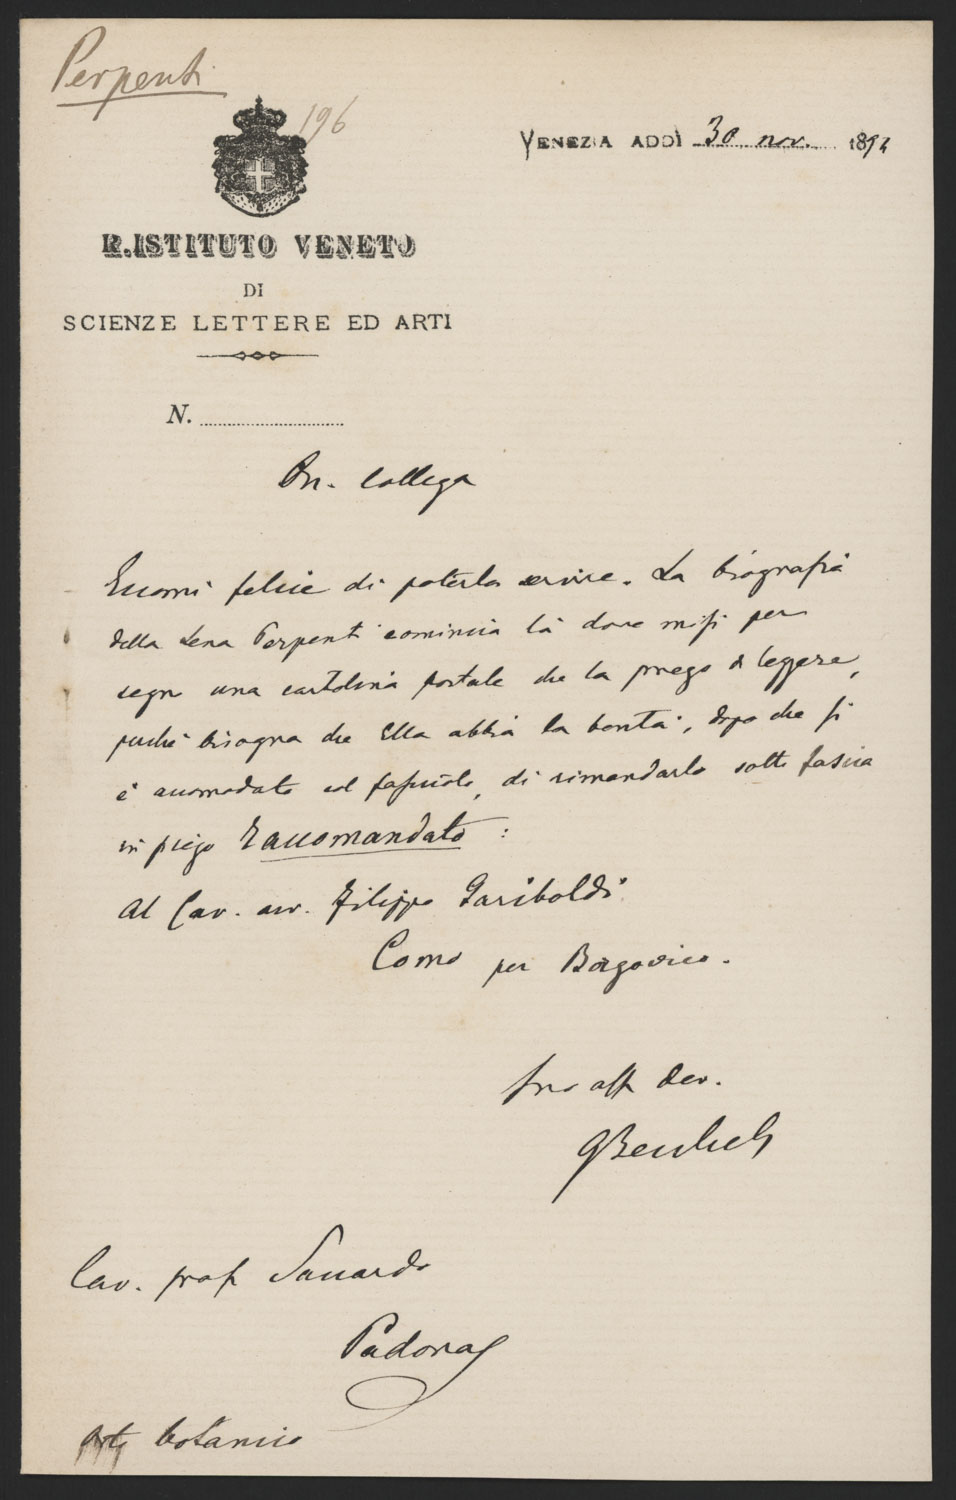 Perpenti
196
VENEZIA ADDÌ 30 nov. 1892
R. ISTITUTO VENETO
DI
SCIENZE LETTERE ED ARTI
N.
On. Collega
Eccomi felice di poterla servire. La biografia
della Lena Perpenti comincia là dove misi per
segno una cartolina postale che la prego di leggere,
perché bisogna che Ella abbia la bontà, dopo che si
è accomodato col fascicolo, di rimandarlo sotto fascia
in piego raccomandato:
Al Cav. avv. Filippo Gariboldi
Como per Borgovico.
Suo aff dev.
Cav. prof Saccardo
Padova
Orto botanico